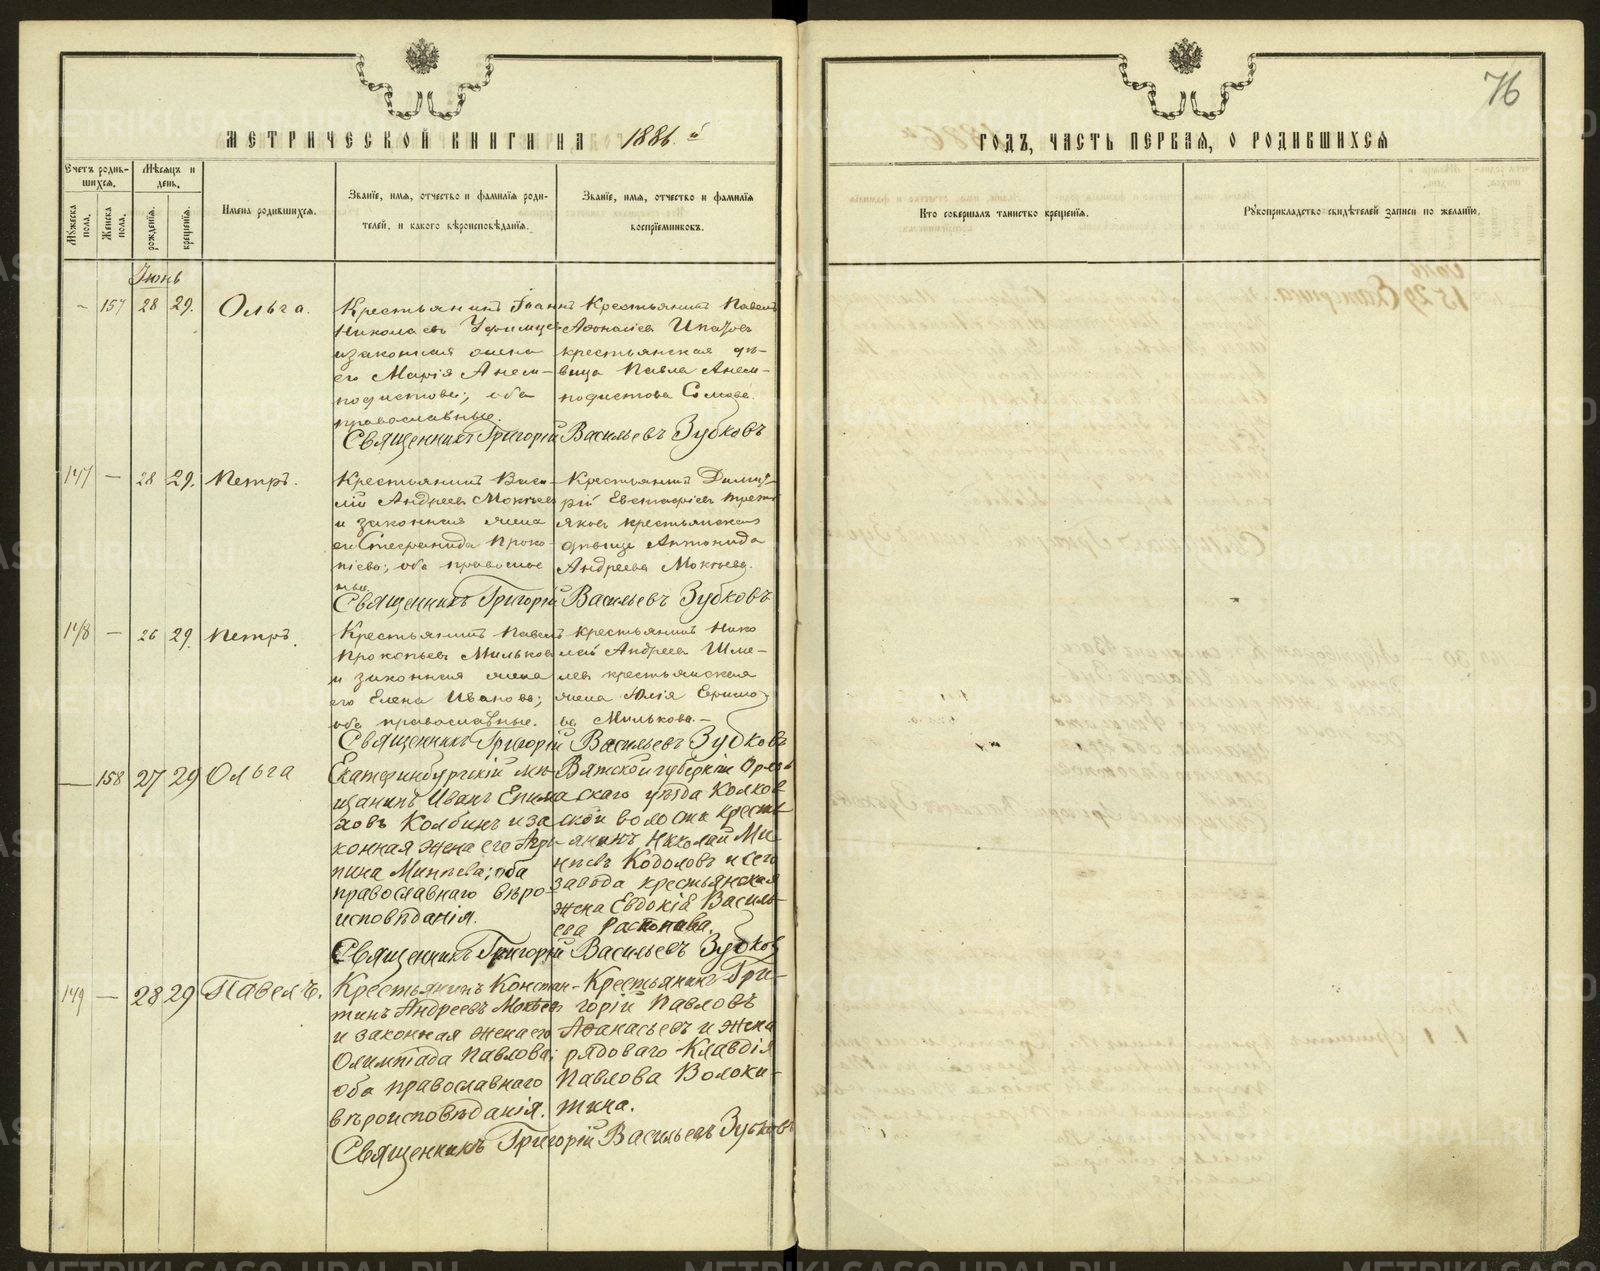 76
МЕТРИЧЕСКОЙ КНИГИ НА 1886.й
ГОДЪ, ЧАСТЬ ПЕРВАЯ, О РОДИВШИХСЯ
Счетъ родив-
шихся.
Мѣсяцъ и
день.
Мужеска
пола.
Женска
пола.
рожденія.
крещенія.
Имена родившихся.
Званіе, имя, отчество и фамилія роди-
телей, и какого вѣроисповѣданія.
Званіе, имя, отчество и фамилія
воспріемниковъ.
Кто совершалъ таинство крещенія.
Рукоприкладство свидѣтелей записи по желанію.
Іюнь
- 157 28 29. Ольга.
Крестьянинъ Іоаннъ
Николаевъ Уфимцевъ
и законная жена
его Марія Анем-
подистова; оба
православные.
Крестьянинъ Павелъ
Афонасіев
крестьянская дѣ-
вица Павла Анем-
подистова
Священникъ Григорій Васильевъ Зубковъ
147 — 28 29. Петръ.
Крестьянинъ Васи-
лій Андреевъ Мокѣев
и законная жена
его Стефанида Проко-
піева; оба православ
ные.
Крестьянинъ Димит-
рій Евстафіев Трет
яков крестьянская
дѣвица Антонида
Андреева Мокѣева.
Священникъ Григорій Васильевъ Зубковъ
148 — 26 29. Петръ.
Крестьянинъ Павелъ
Прокопьевъ Мильков
и законная жена
его Елена Иванова;
оба православные.
крестьянинъ Нико
лай Андреев Шме-
лев крестьянская
жена Юлія Ефимо
ва Милькова.-
Священникъ Григорій Васильевъ Зубковъ
— 158 27 29 Ольга
Екатеринбургскій мѣ-
щанинъ Иванъ Епима
ховъ Колбинъ и за
конная жена его Агри-
пина Минѣева; оба
православнаго вѣро-
исповѣданія.
Вятской губерніи Орлов
скаго уѣзда Колков
ской волости кресть
янинъ Николай Ми-
нѣевъ Кодоловъ и сего
завода крестьянская
жена Евдокія Василь-
ева
Священникъ Григорій Васильевъ Зубков
149 — 28 29 Павелъ.
Крестьянинъ Констан-
тинъ Андреевъ Мокѣевъ
и законная жена его
Олимпіада Павлова;
оба православнаго
вѣроисповѣданія.
Крестьянинъ Гри-
горій Павловъ
Афанасьевъ и жена
рядоваго Клавдія
Павлова Волоки-
тина.
Священникъ Григорій Васильевъ Зубковъ